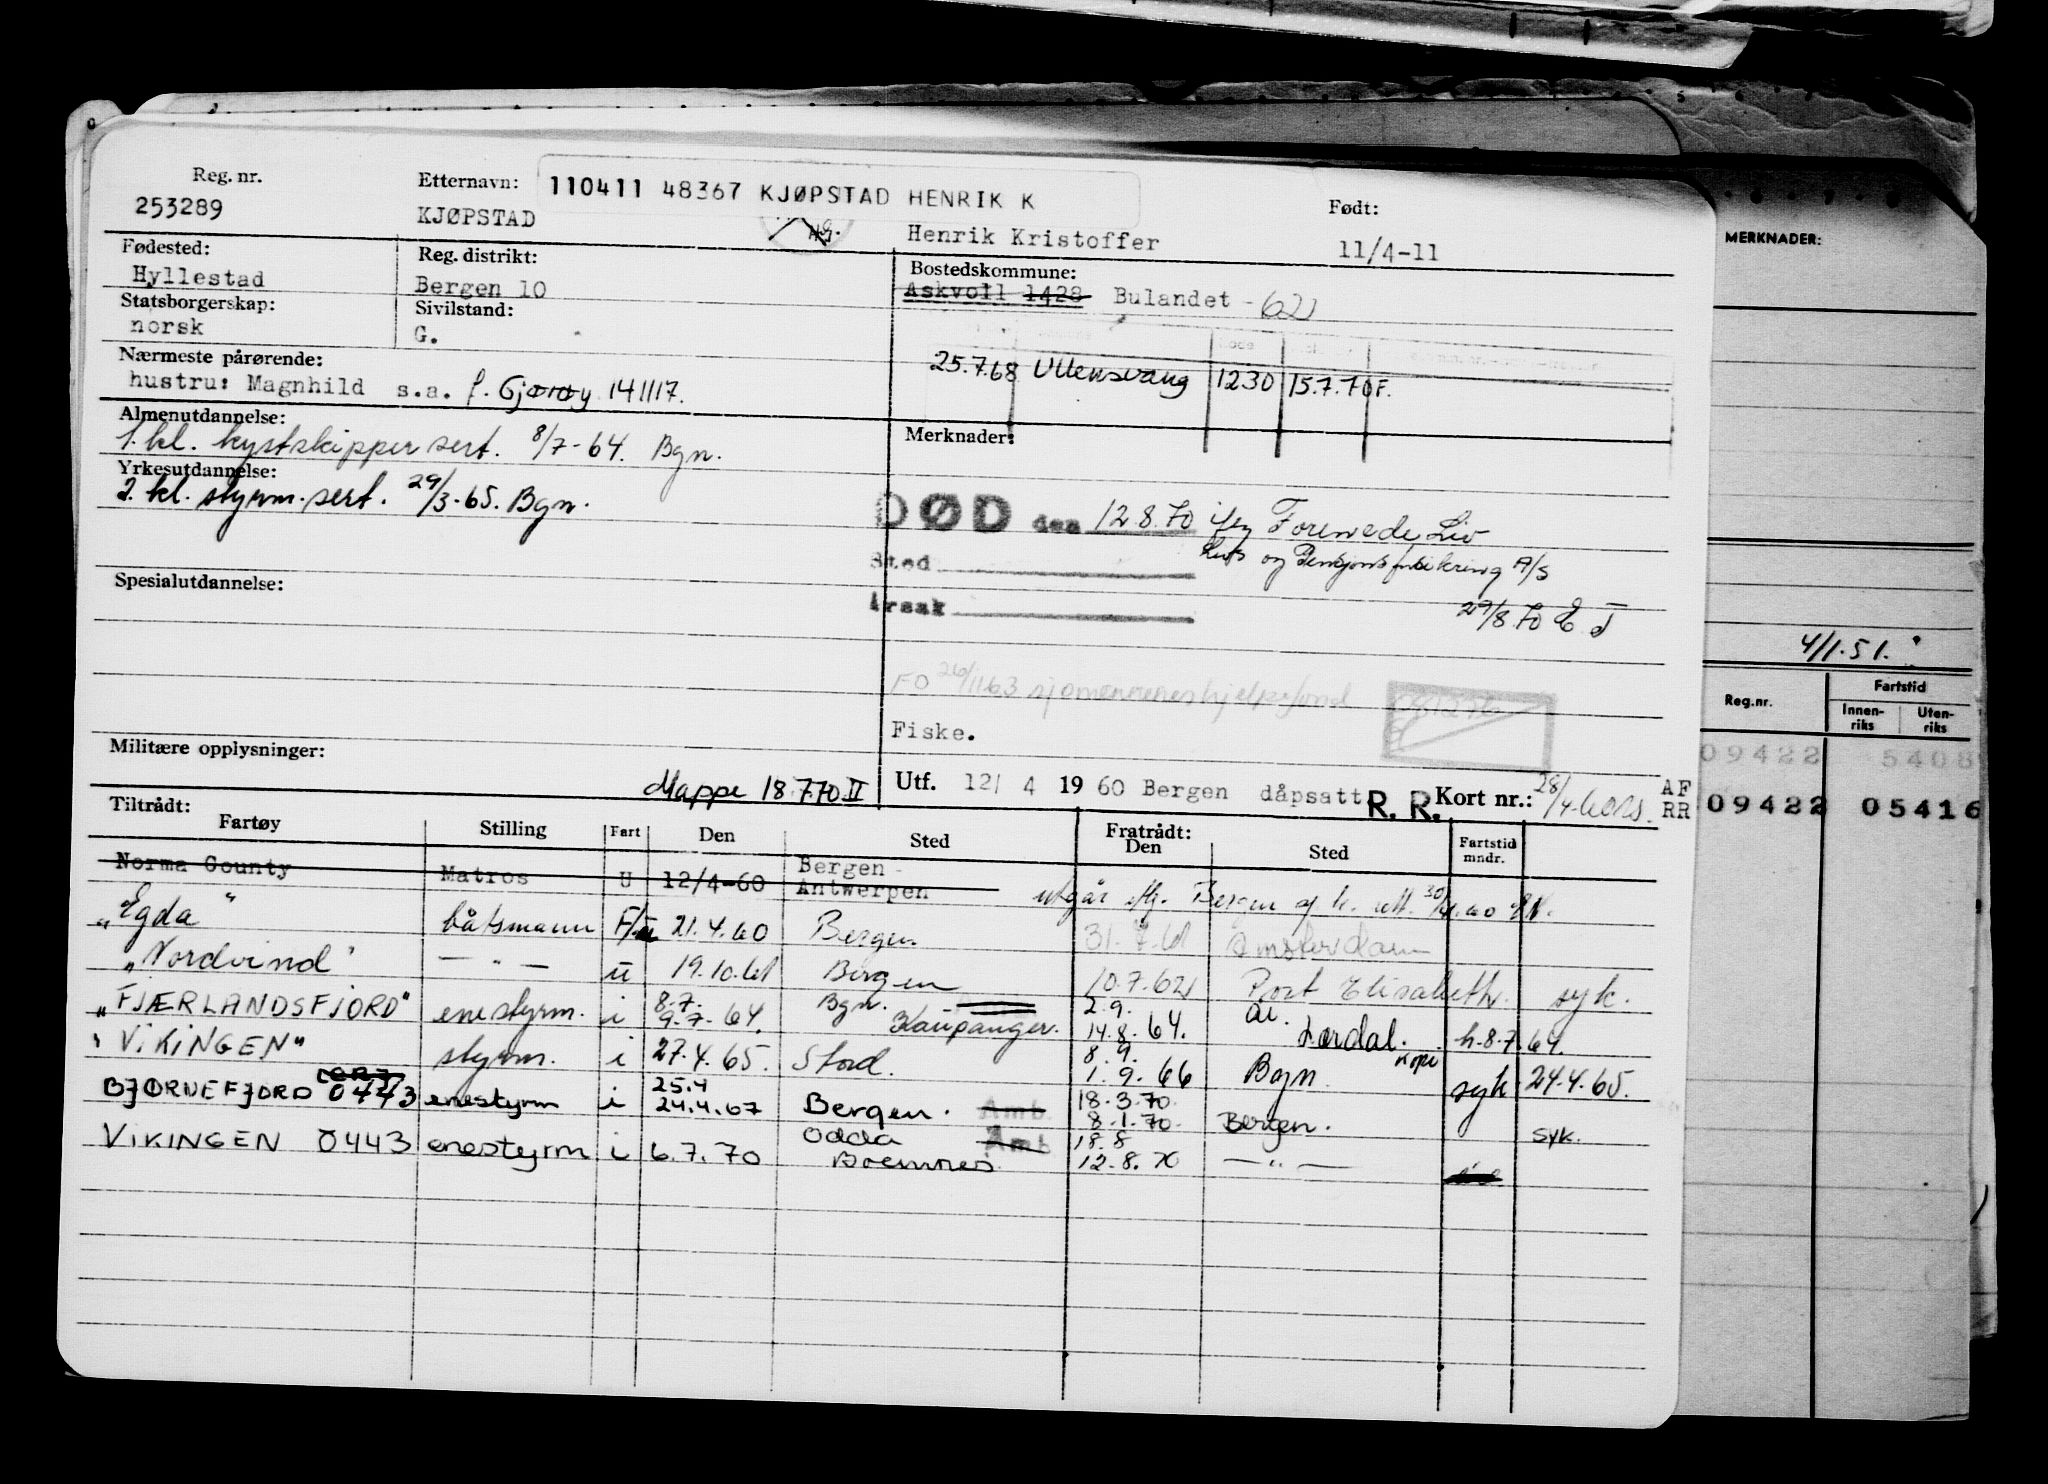 Reg. nr. Etternavn: 110411 48367 KJØPSTAD HENRIK K Født:
253289 KJØPSTAD Henrik Kristoffer 11/4-11
MERKNADER:
Fødested: Reg. distrikt: Bostedskommune:
Hyllestad Bergen 10 Askvoll 1428 Bulandet - 62
Statsborgerskap: Sivilstand:
norsk G.
Nærmeste pårørende: 25.7.68 Ullensvang 1230 15.7.70 F.
hustru: Magnhild s.a. f. 141117.
Almenutdannelse: Merknader:
1. kl. kystskippersert. 8/7-64. Bgn.
Yrkesutdannelse:
2. kl. styrm. sert. 29/3-65. Bgn.
DØD den 12.8.70 Forenede Liv
Sted og Pensjonsforsikring A/S
Årsak 29/8.70 E.T
Spesialutdannelse:
4/1.51.
FO 26/11.63 sjømennenes hjelpefond
Reg.nr. Fartstid
Innen-riks Uten-riks
Fiske.
09422 5408
Militære opplysninger:
Mappe 18.7.70 II Utf. 12/ 4 19 60 Bergen dåpsatt R. R. Kort nr.: 28/4-60 AF
RR 09422 05416
Tiltrådt: Fratrådt:
Fartøy Stilling Fart Den Sted Den Sted Fartstid mndr.
Norma County Matros U 12/4-60 Bergen - Antwerpen utgår Bergen 30/4.60
"Egda" båtsmann F/u 21.4.60 Bergen 31.7.61 Amsterdam
"Nordvind" — " — u 19.10.61 Bergen 10.7.62 Port Elisabeth. syk.
"FJÆRLANDSFJORD" enestyrm. i 8.7. 9.7.64. Bgn. Kaupanger. 2.9. 14.8.64. Lærdal. h.8.7.64.
"VIKINGEN" styrm. i 27.4.65. Stord. 8.9. 1.9.66 Bgn syk 24.4.65.
BJØRNEFJORD 0473 enestyrm i 25.4 24.4.67 Bergen. Amb 18.3.70 8.1.70 Bergen. syk.
VIKINGEN 0443 enestyrm i 6.7.70 Odda Amb 18.8 12.8.70 — " —